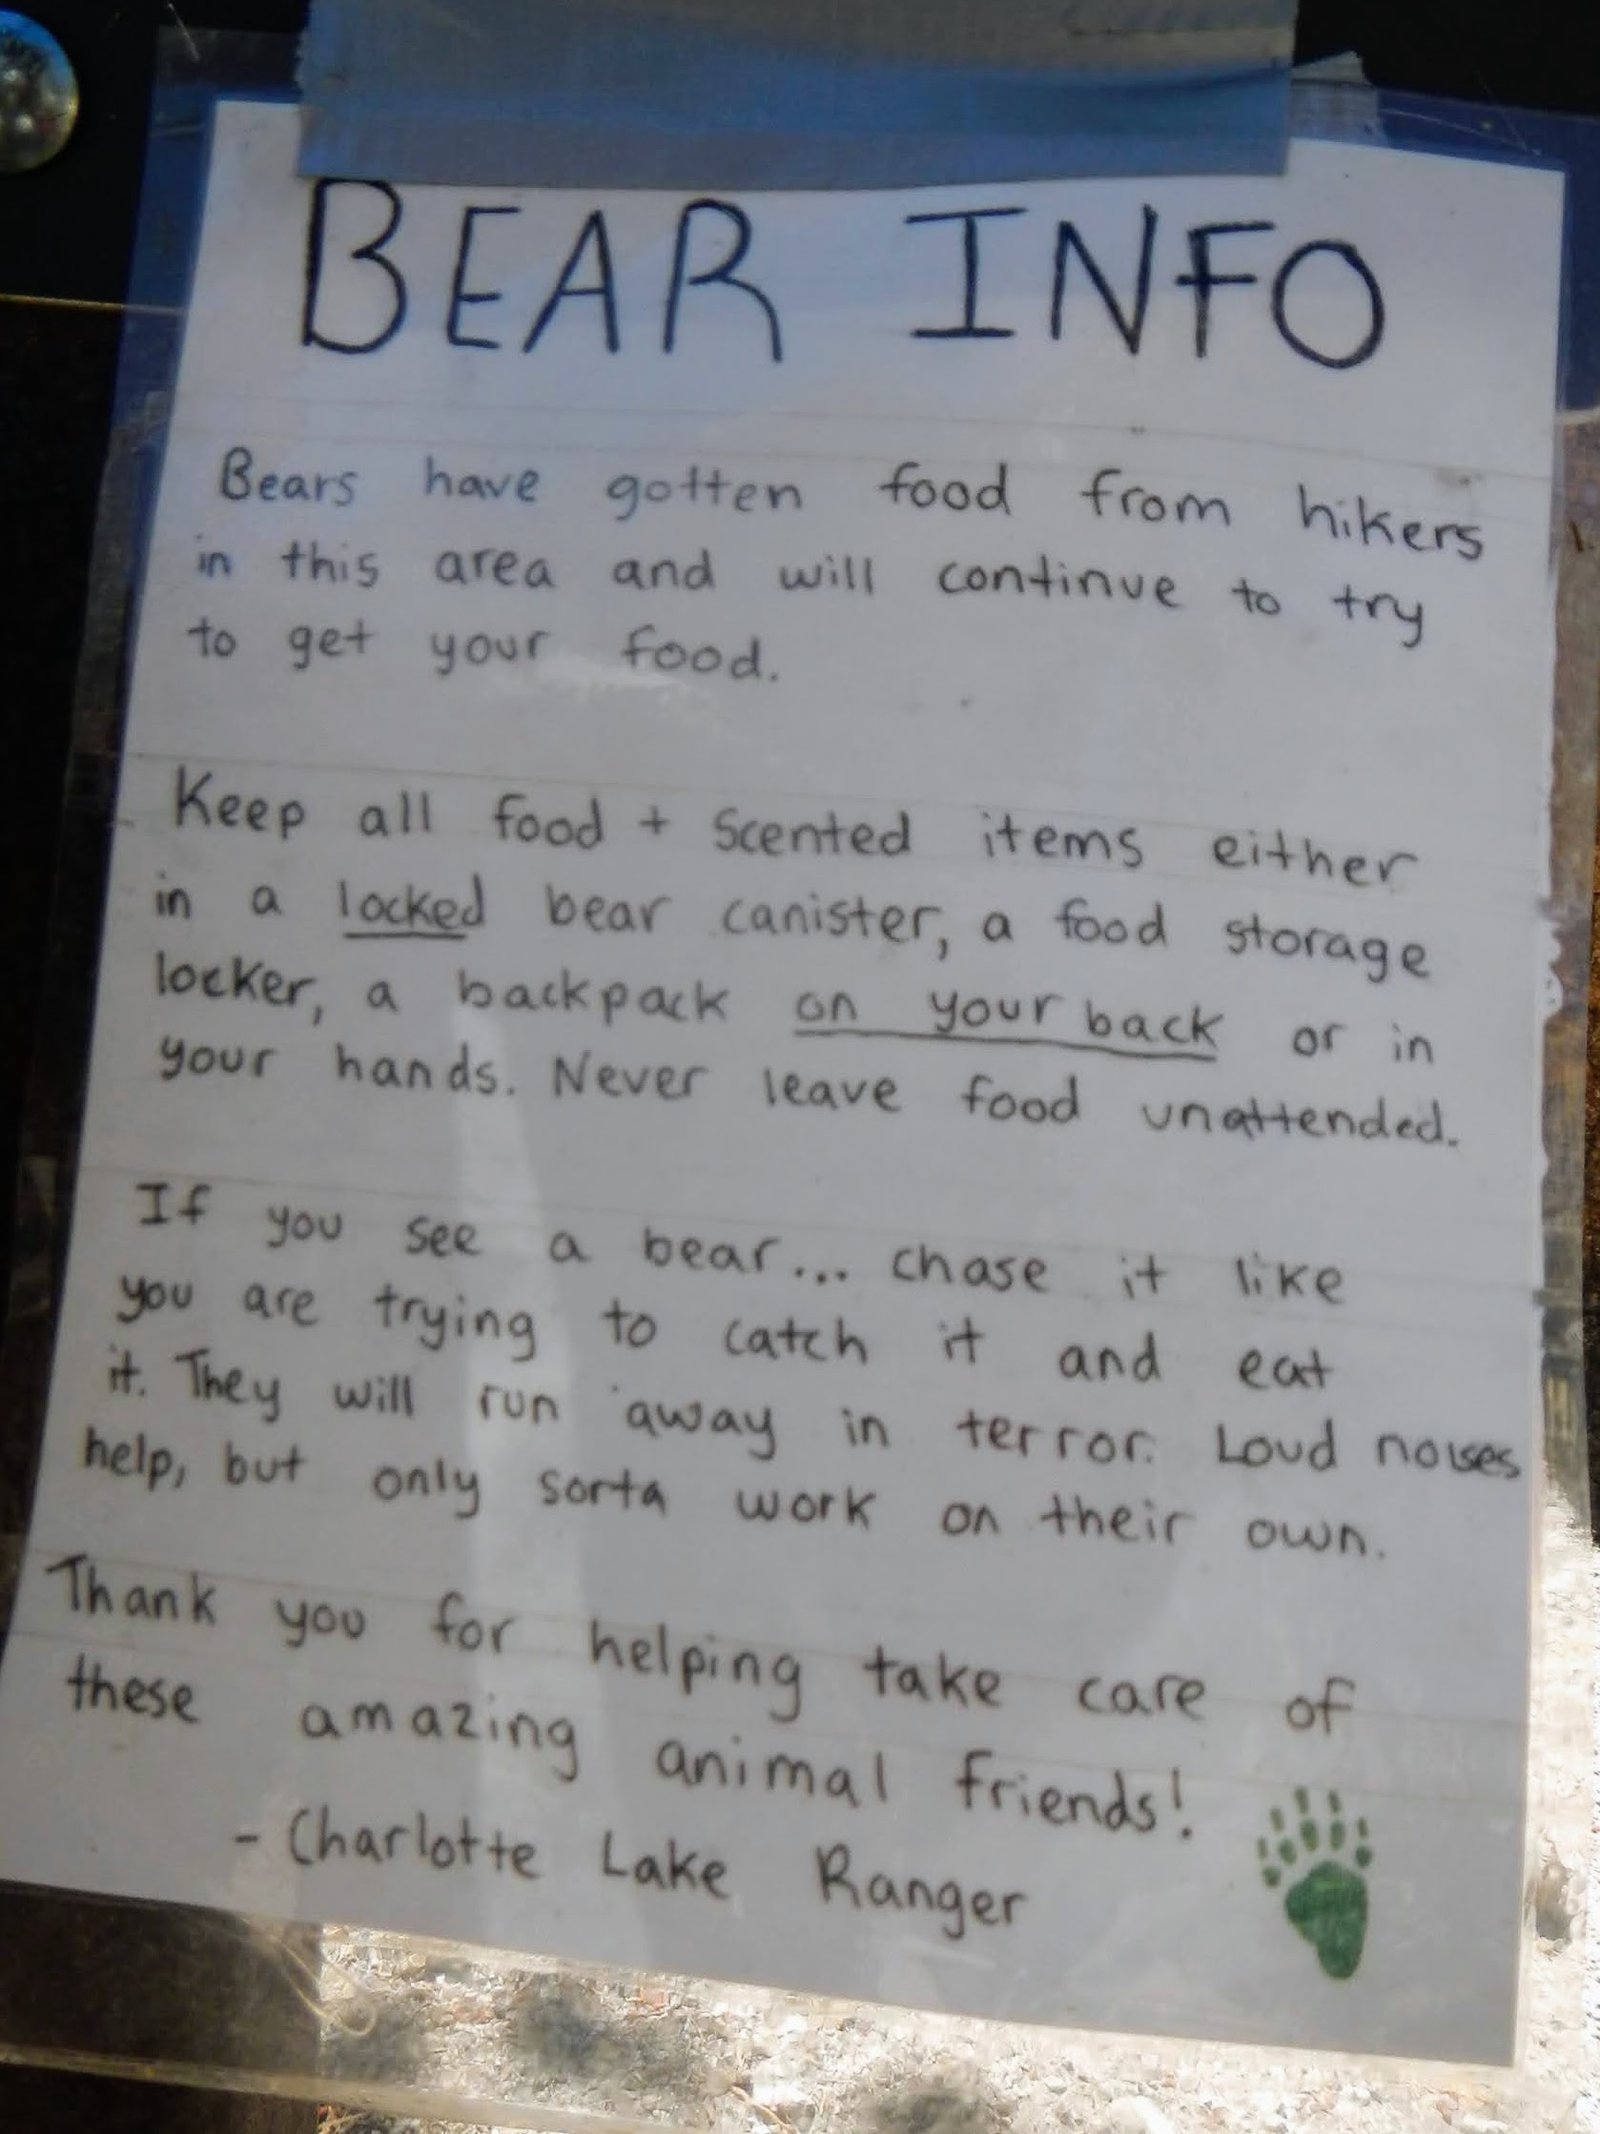 BEAR INFO
Bears have gotten food from hikers
in this area and will continue to try
to get your food.
Keep all food + scented items either
in a locked bear canister, a food storage
locker, a backpack on your back or in
your hands. Never leave food unattended.
If you see a bear... chase it like
you are trying to catch it and eat
it. They will run away in terror. Loud noises
help, but only sorta work on their own.
Thank you for helping take care of
these amazing animal friends!
- Charlotte Lake Ranger